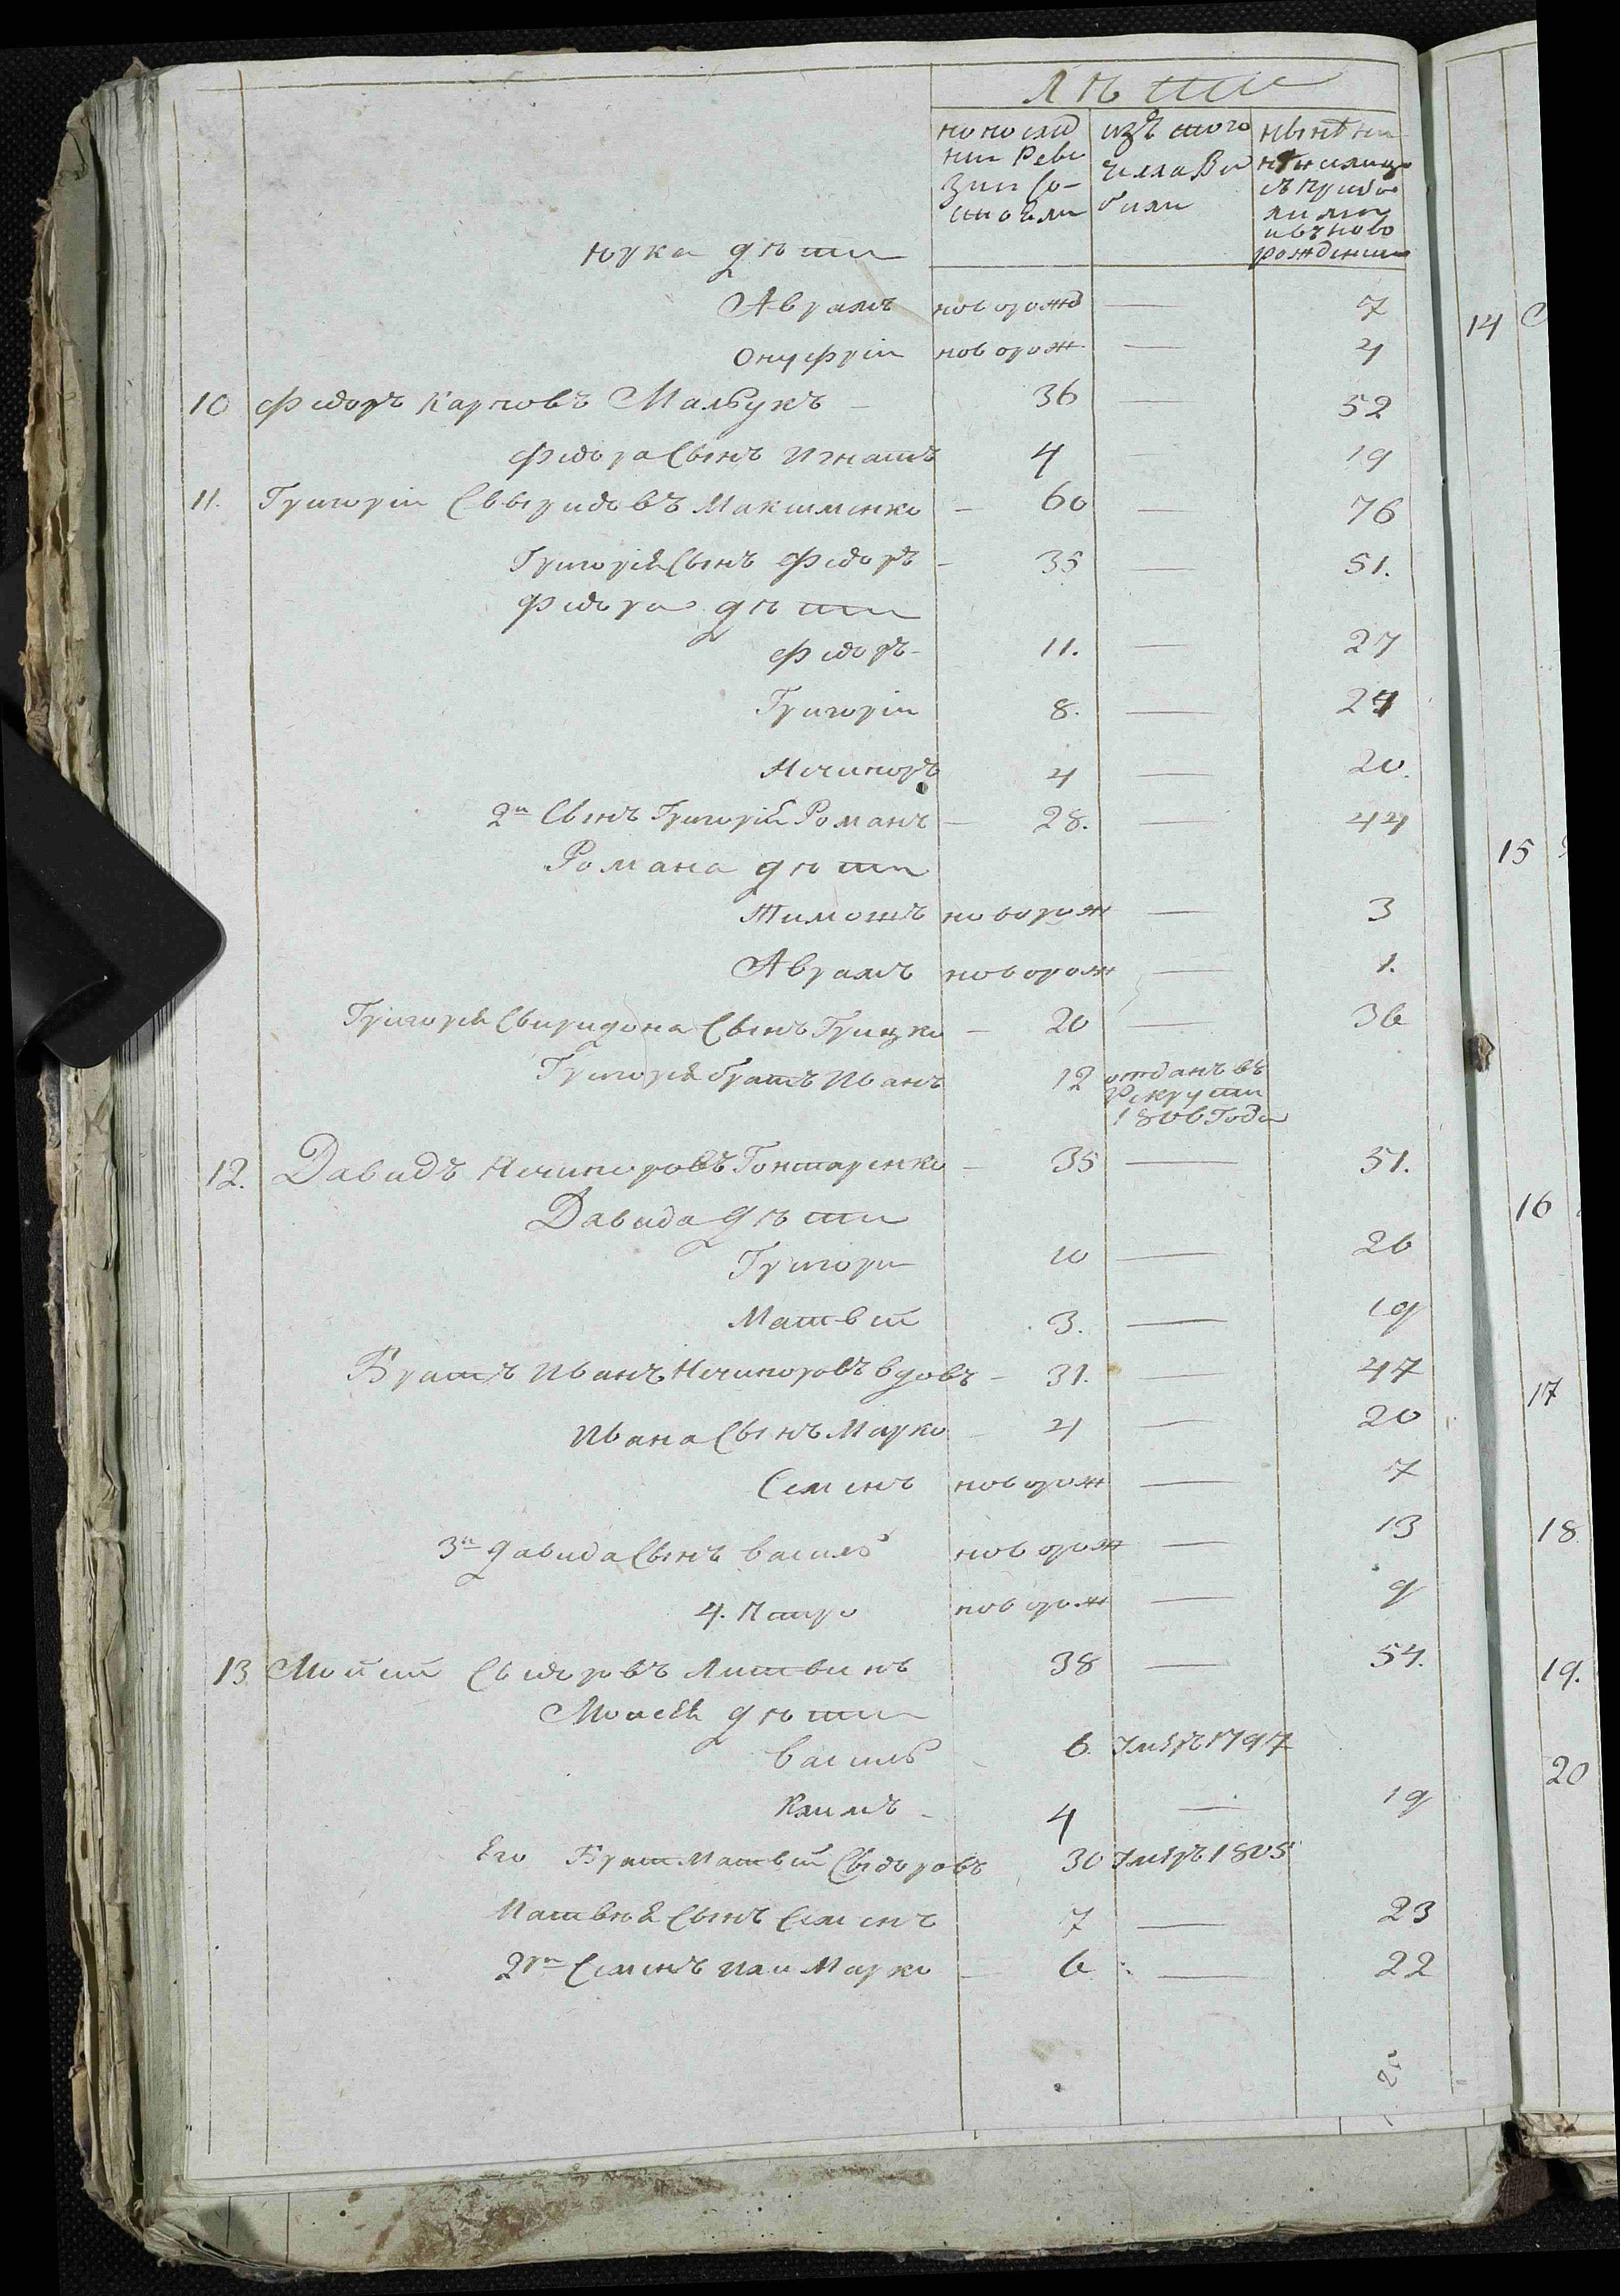 Лѣти
по послѣд
ней Реви
зіи Со-
стояли
изъ того
числа Вы
были
нынѣ на
лицо
съ прибы
лыми
и въ ново
рожденными
Юрка дѣти
Аврамъ новорожд — 7
Онуфрій новорож — 4
10 Федоръ Карповъ Малбукъ — 36 — 52
Федора Сынъ Игнатъ 4 — 19
11. Григорій Свыридовъ Максименко — 60 — 76
Григорія Сынъ Федоръ — 35 — 51.
Федора дѣти
Федоръ — 11. — 27
Григорій 8. — 24
Нечипоръ 4 — 20.
2й Сынъ Григорія Романъ — 28. — 44
Романа дѣти
Тимошъ новорож — 3
Аврамъ новорож — 1.
Григорія Свиридона Сынъ Грицко — 20 — 36
Григорія братъ Иванъ 12 отданъ въ
Рекруты
1806 Года
12. Давидъ Нечипоровъ Гонтаренко — 35 — 51.
Давида дѣти
Григори 10 — 26
Матвей 3. — 19
Братъ Иванъ Нечипоровъ вдовъ — 31. — 47
Ивана Сынъ Марко — 4 — 20
Семенъ новорож — 7
3й Давида Сынъ Василь новорож — 13
4. Петро новорож — 9
13 Мойсей Сыдоровъ Литвинъ 38 — 54.
Моисея дѣти
Василь 6. Умеръ 1797
Климъ — 4 — 19
Его Братъ Матвей Сыдоровъ 30 Умеръ 1805
Матвея Сынъ Семенъ 7 — 23
2й Семенъ или Марко — 6 — 22
14
15
16
17
18
19.
20